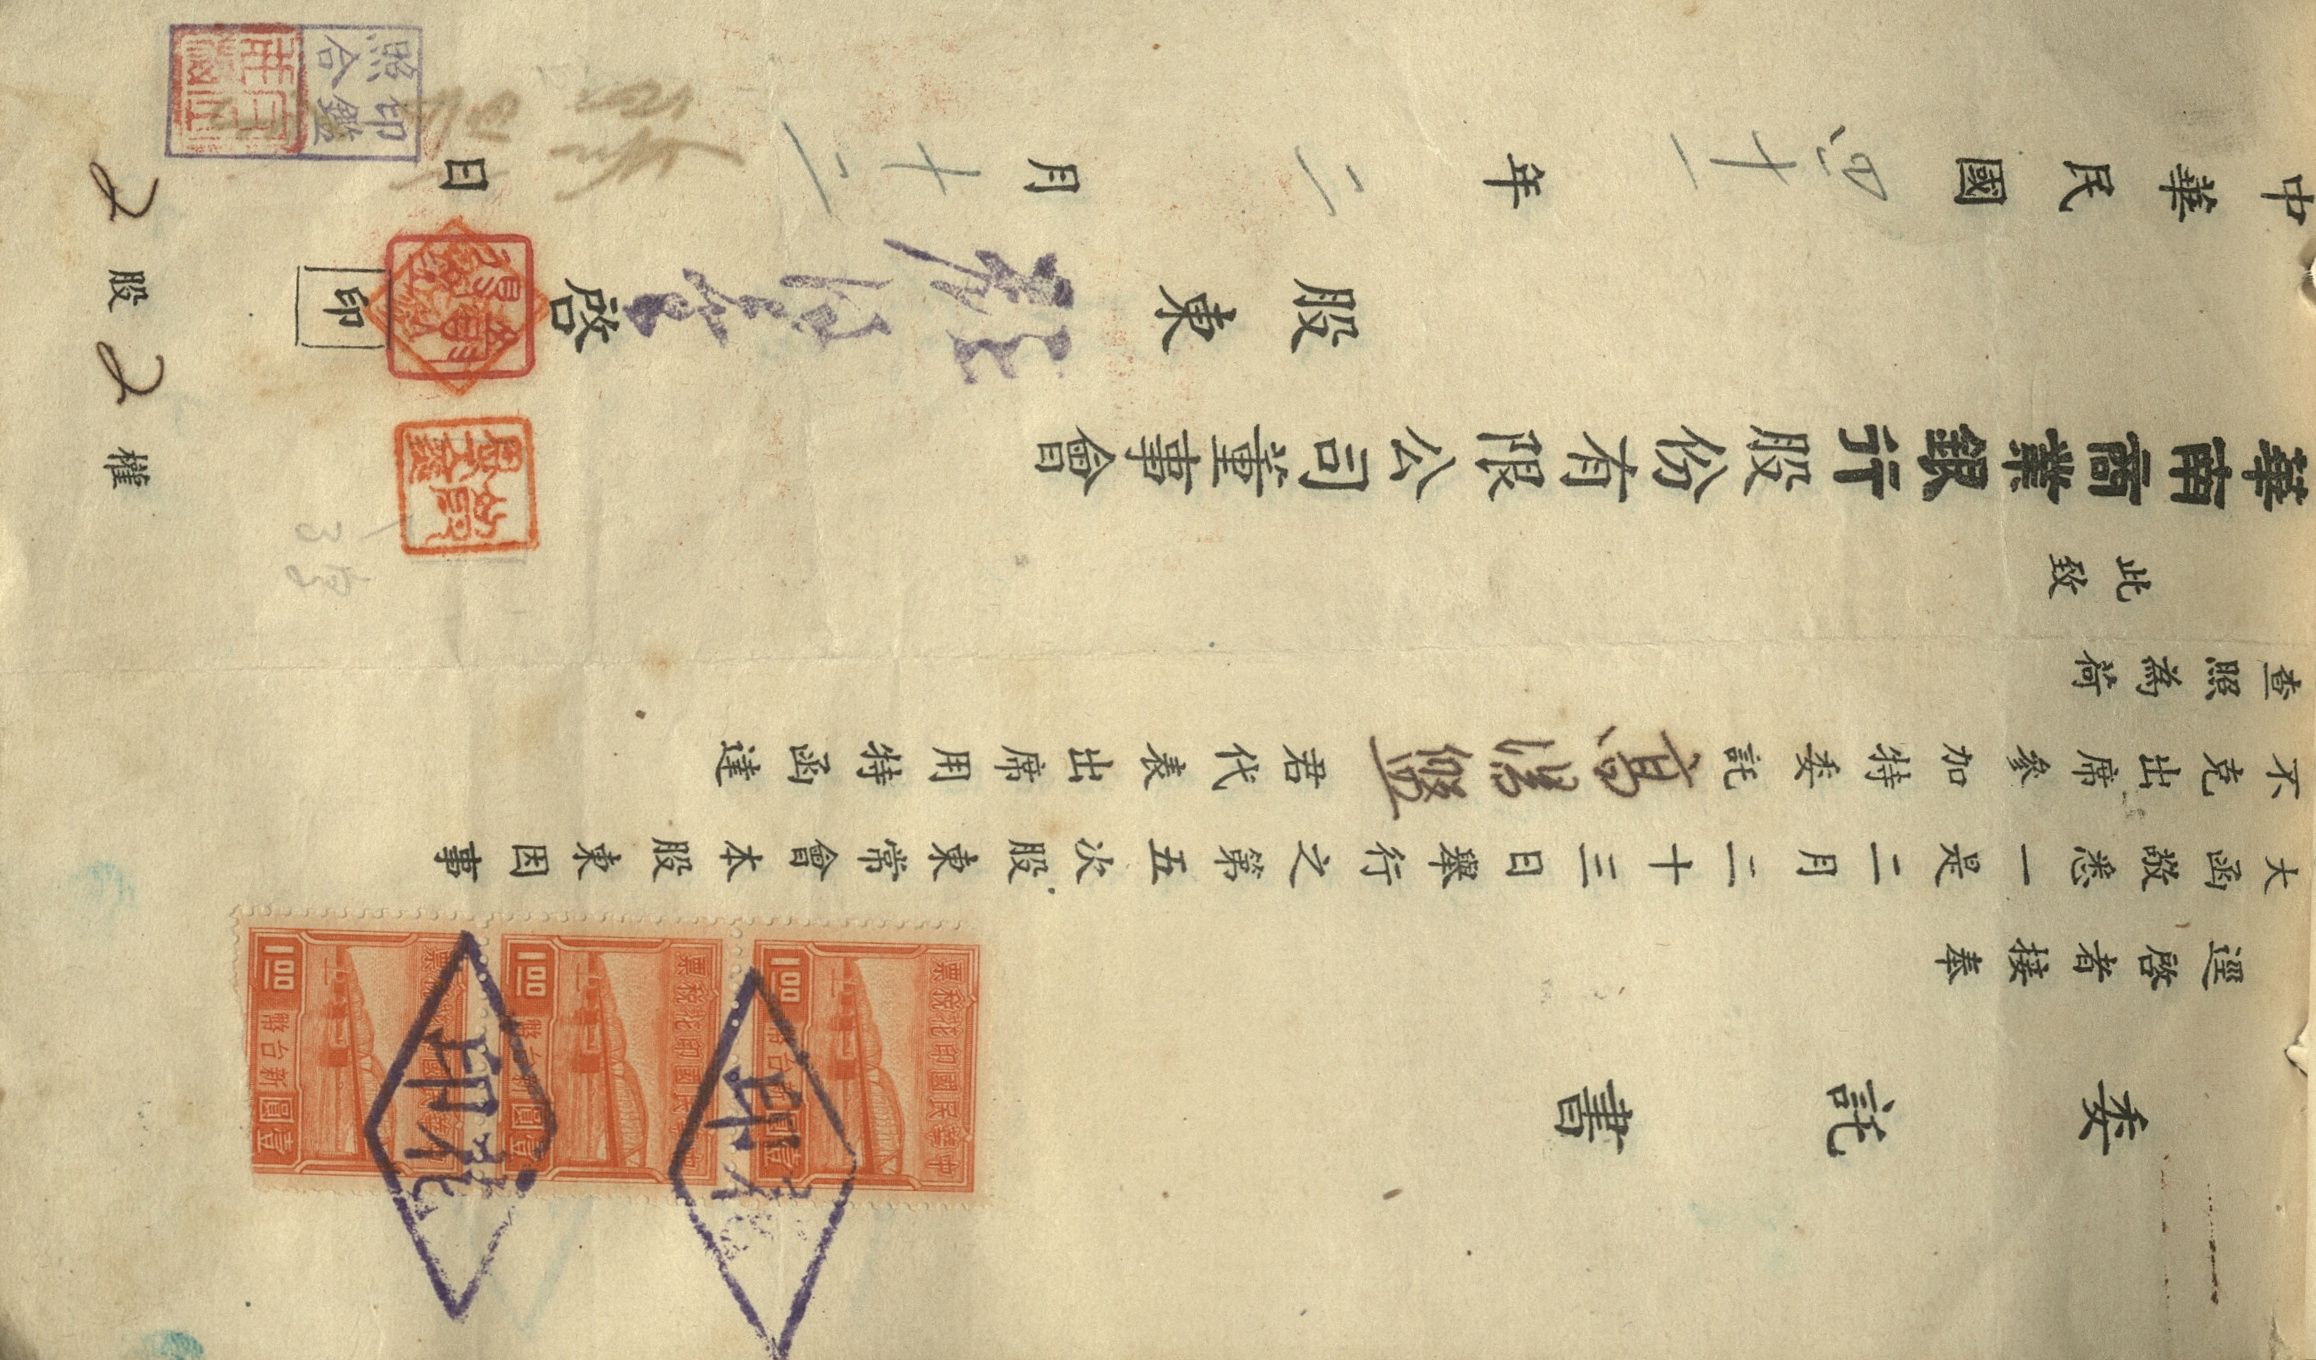 委託書
逕啓者接奉
大函敬悉一是二月二十三日舉行之第五次股東常會本股東因事
不克出席參加特委託 君代表出席用特函達
查照為荷
此致
華南商業銀行股份有限公司董事會
股東 啓
印
中華民國四十一年二月十二日
2股2權
印鑑
照合
中華民國印花稅票
1.00
新台幣
壹圓
中華民國印花稅票
1.00
新台幣
壹圓
中華民國印花稅票
1.00
新台幣
壹圓
印花
印花